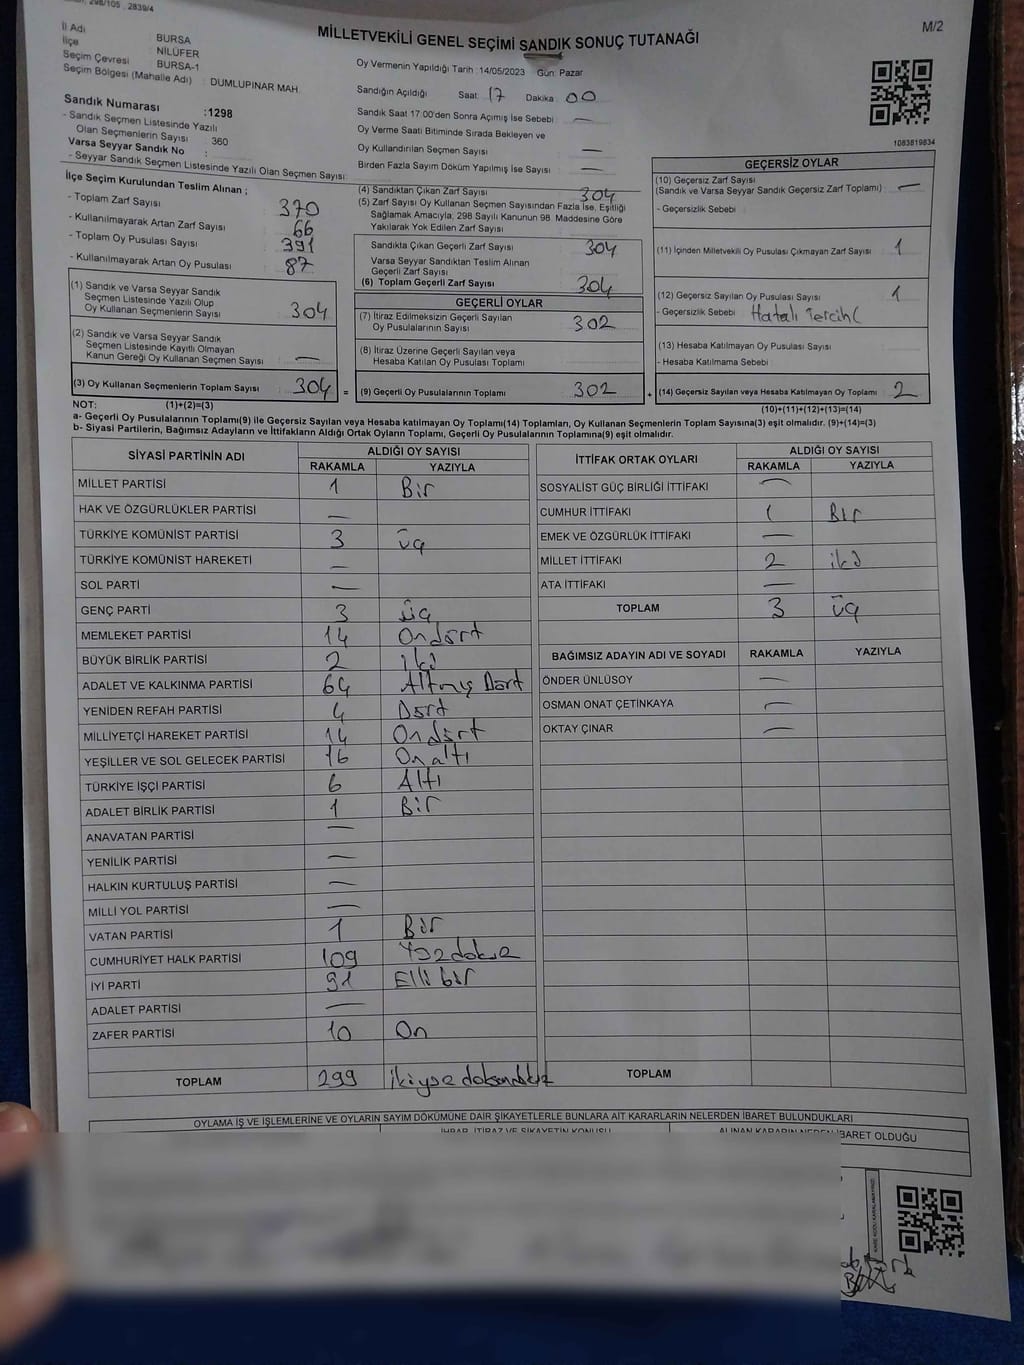 298/105 , 2839/4
M/2
MİLLETVEKİLİ GENEL SEÇİMİ SANDIK SONUÇ TUTANAĞI
İl Adı : BURSA
İlçe : NİLÜFER
Seçim Çevresi : BURSA-1
Seçim Bölgesi (Mahalle Adı) : DUMLUPINAR MAH.
Sandık Numarası :1298
- Sandık Seçmen Listesinde Yazılı
Olan Seçmenlerin Sayısı : 360
Varsa Seyyar Sandık No :
- Seyyar Sandık Seçmen Listesinde Yazılı Olan Seçmen Sayısı:
Oy Vermenin Yapıldığı Tarih :14/05/2023 Gün: Pazar
Sandığın Açıldığı Saat: 17 Dakika: 00
Sandık Saat 17:00'den Sonra Açımış İse Sebebi : —
Oy Verme Saati Bitiminde Sırada Bekleyen ve
Oy Kullandırılan Seçmen Sayısı : —
Birden Fazla Sayım Döküm Yapılmış İse Sayısı : —
1083819834
İlçe Seçim Kurulundan Teslim Alınan ;
- Toplam Zarf Sayısı : 370
- Kullanılmayarak Artan Zarf Sayısı : 66
- Toplam Oy Pusulası Sayısı : 391
- Kullanılmayarak Artan Oy Pusulası : 87
(1) Sandık ve Varsa Seyyar Sandık
Seçmen Listesinde Yazılı Olup
Oy Kullanan Seçmenlerin Sayısı : 304
(2) Sandık ve Varsa Seyyar Sandık
Seçmen Listesinde Kayıtlı Olmayan
Kanun Gereği Oy Kullanan Seçmen Sayısı : —
(3) Oy Kullanan Seçmenlerin Toplam Sayısı : 304 =
(4) Sandıktan Çıkan Zarf Sayısı : 304
(5) Zarf Sayısı Oy Kullanan Seçmen Sayısından Fazla İse, Eşitliği
Sağlamak Amacıyla, 298 Sayılı Kanunun 98. Maddesine Göre
Yakılarak Yok Edilen Zarf Sayısı :
Sandıkta Çıkan Geçerli Zarf Sayısı : 304
Varsa Seyyar Sandıktan Teslim Alınan
Geçerli Zarf Sayısı :
(6) Toplam Geçerli Zarf Sayısı : 304
GEÇERLİ OYLAR
(7) İtiraz Edilmeksizin Geçerli Sayılan
Oy Pusulalarının Sayısı : 302
(8) İtiraz Üzerine Geçerli Sayılan veya
Hesaba Katılan Oy Pusulası Toplamı :
(9) Geçerli Oy Pusulalarının Toplamı : 302 +
GEÇERSİZ OYLAR
(10) Geçersiz Zarf Sayısı
(Sandık ve Varsa Seyyar Sandık Geçersiz Zarf Toplamı) : —
- Geçersizlik Sebebi :
(11) İçinden Milletvekili Oy Pusulası Çıkmayan Zarf Sayısı : 1
(12) Geçersiz Sayılan Oy Pusulası Sayısı : 1
- Geçersizlik Sebebi : Hatalı Tercih
(13) Hesaba Katılmayan Oy Pusulası Sayısı :
- Hesaba Katılmama Sebebi :
(14) Geçersiz Sayılan veya Hesaba Katılmayan Oy Toplamı : 2
NOT: (1)+(2)=(3) (10)+(11)+(12)+(13)=(14)
a- Geçerli Oy Pusulalarının Toplamı(9) ile Geçersiz Sayılan veya Hesaba katılmayan Oy Toplamı(14) Toplamları, Oy Kullanan Seçmenlerin Toplam Sayısına(3) eşit olmalıdır. (9)+(14)=(3)
b- Siyasi Partilerin, Bağımsız Adayların ve İttifakların Aldığı Ortak Oyların Toplamı, Geçerli Oy Pusulalarının Toplamına(9) eşit olmalıdır.
SİYASİ PARTİNİN ADI ALDIĞI OY SAYISI
RAKAMLA YAZIYLA
MİLLET PARTİSİ 1 Bir
HAK VE ÖZGÜRLÜKLER PARTİSİ —
TÜRKİYE KOMÜNİST PARTİSİ 3 üç
TÜRKİYE KOMÜNİST HAREKETİ —
SOL PARTİ —
GENÇ PARTİ 3 üç
MEMLEKET PARTİSİ 14 Ondört
BÜYÜK BİRLİK PARTİSİ 2 iki
ADALET VE KALKINMA PARTİSİ 64 Altmış Dört
YENİDEN REFAH PARTİSİ 4 Dört
MİLLİYETÇİ HAREKET PARTİSİ 14 Ondört
YEŞİLLER VE SOL GELECEK PARTİSİ 16 Onaltı
TÜRKİYE İŞÇİ PARTİSİ 6 Altı
ADALET BİRLİK PARTİSİ 1 Bir
ANAVATAN PARTİSİ —
YENİLİK PARTİSİ —
HALKIN KURTULUŞ PARTİSİ —
MİLLİ YOL PARTİSİ —
VATAN PARTİSİ 1 Bir
CUMHURİYET HALK PARTİSİ 109 Yüzdokuz
İYİ PARTİ 51 Elli bir
ADALET PARTİSİ —
ZAFER PARTİSİ 10 On
TOPLAM 299 ikiyüzdoksandokuz
İTTİFAK ORTAK OYLARI ALDIĞI OY SAYISI
RAKAMLA YAZIYLA
SOSYALİST GÜÇ BİRLİĞİ İTTİFAKI —
CUMHUR İTTİFAKI 1 Bir
EMEK VE ÖZGÜRLÜK İTTİFAKI —
MİLLET İTTİFAKI 2 iki
ATA İTTİFAKI —
TOPLAM 3 üç
BAĞIMSIZ ADAYIN ADI VE SOYADI RAKAMLA YAZIYLA
ÖNDER ÜNLÜSOY —
OSMAN ONAT ÇETİNKAYA —
OKTAY ÇINAR —
TOPLAM
OYLAMA İŞ VE İŞLEMLERİNE VE OYLARIN SAYIM DÖKÜMÜNE DAİR ŞİKAYETLERLE BUNLARA AİT KARARLARIN NELERDEN İBARET BULUNDUKLARI
İHBAR, İTİRAZ VE ŞİKAYETİN KONUSU ALINAN KARARIN NEDEN İBARET OLDUĞU